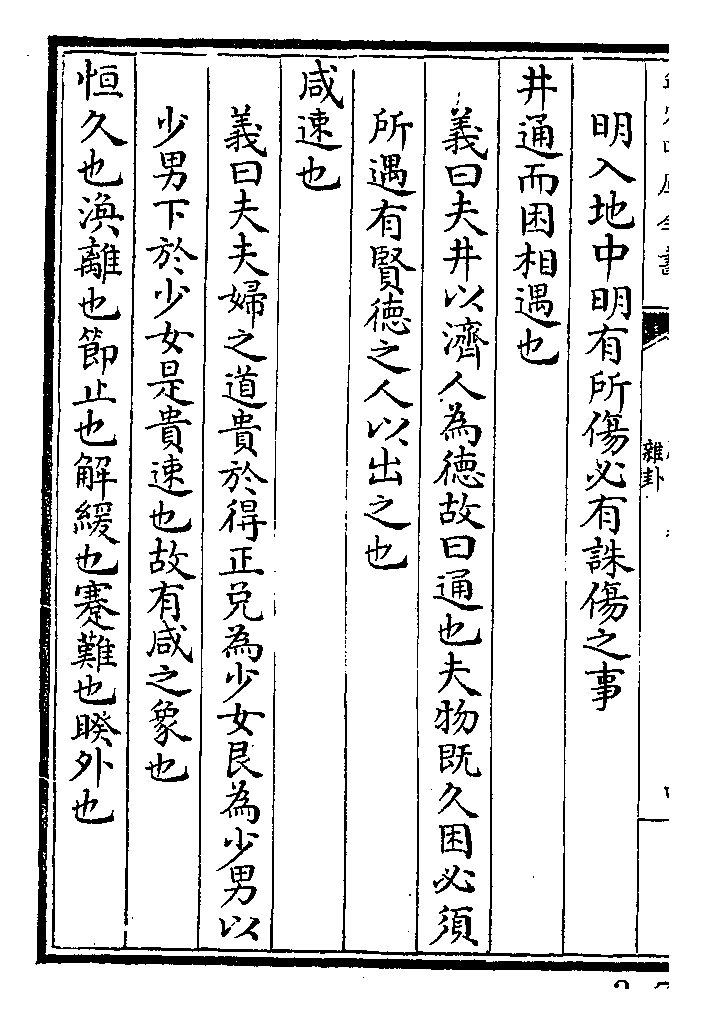 雜卦
明入地中明有所傷必有誅傷之事
井通而困相遇也
義曰夫井以濟人為德故曰通也夫物既久困必須
所遇有賢德之人以出之也
咸速也
義曰夫夫婦之道貴於得正兑為少女艮為少男以
少男下於少女是貴速也故有咸之象也
恒久也渙離也節止也解緩也蹇難也睽外也